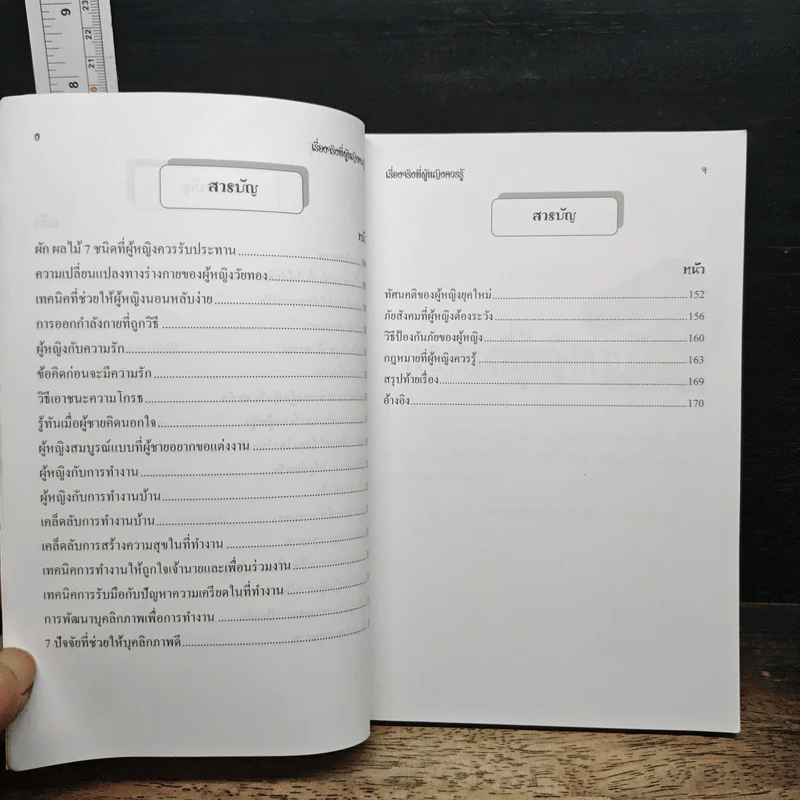 9
8
23
22
21
เรื่องจริงที่ผู้หญิง
สารบัญ
ผัก ผลไม้ 7 ชนิดที่ผู้หญิงควรรับประทาน
ความเปลี่ยนแปลงทางร่างกายของผู้หญิงวัยทอง
เทคนิคที่ช่วยให้ผู้หญิงนอนหลับง่าย
การออกกำลังกายที่ถูกวิธี
ผู้หญิงกับความรัก
ข้อคิดก่อนจะมีความรัก
วิธีเอาชนะความโกรธ
รู้ทันเมื่อผู้ชายคิดนอกใจ
ผู้หญิงสมบูรณ์แบบที่ผู้ชายอยากขอแต่งงาน
ผู้หญิงกับการทำงาน
ผู้หญิงกับการทำงานบ้าน
เคล็ดลับการทำงานบ้าน
เคล็ดลับการสร้างความสุขในที่ทำงาน
เทคนิคการทำงานให้ถูกใจเจ้านายและเพื่อนร่วมงาน
เทคนิคการรับมือกับปัญหาความเครียดในที่ทำงาน
การพัฒนาบุคลิกภาพเพื่อการทำงาน
7 ปัจจัยที่ช่วยให้บุคลิกภาพดี
เรื่องจริงที่ผู้หญิงควรรู้
สารบัญ
หน้า
ทัศนคติของผู้หญิงยุคใหม่ 152
ภัยสังคมที่ผู้หญิงต้องระวัง 156
วิธีป้องกันภัยของผู้หญิง 160
กฎหมายที่ผู้หญิงควรรู้ 163
สรุปท้ายเรื่อง 169
อ้างอิง 170